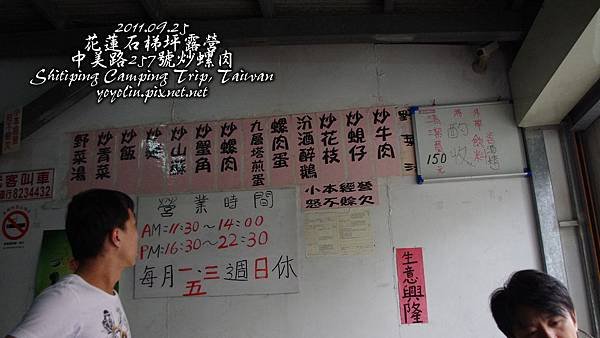 2011.09.25
花蓮石梯坪露營
中美路257號炒螺肉
Shitiping Camping Trip, Taiwan
yoyolin.pixnet.net
野菜湯
炒青菜
炒飯
炒麵
炒山蘇
炒蟹角
炒螺肉
九層塔煎蛋
螺肉蛋
汾酒醉鵝
炒花枝
炒蜆仔
炒牛肉
小本經營
恕不賒欠
清潔費
150元
酌收
客叫車
8234432
營業時間
AM:11:30～14:00
PM:16:30～22:30
每月一、三週日休
五
生意興隆